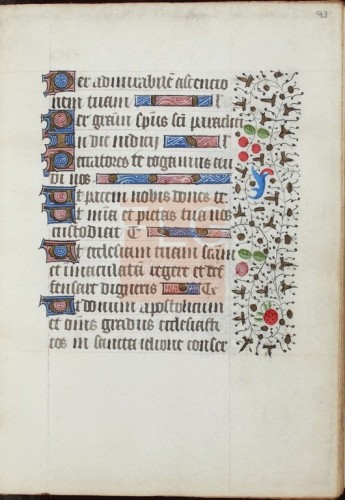 93
Per admirabilē ascencio
nem tuam
Per gratiā sp̄us sc̄i paracliti
In die iudicij
Peccatores te rogamus au
di nos
Ut pacem nobis dones te
Ut mīa et pietas tua nos
custodiat Te
Ut ecclesiam tuam sc̄am
et inmaculatā regere et de
fensare digneris Te
Ut domnum apostolicum
et om̄s gradus ecclesiasti
cos in sancta religione conser